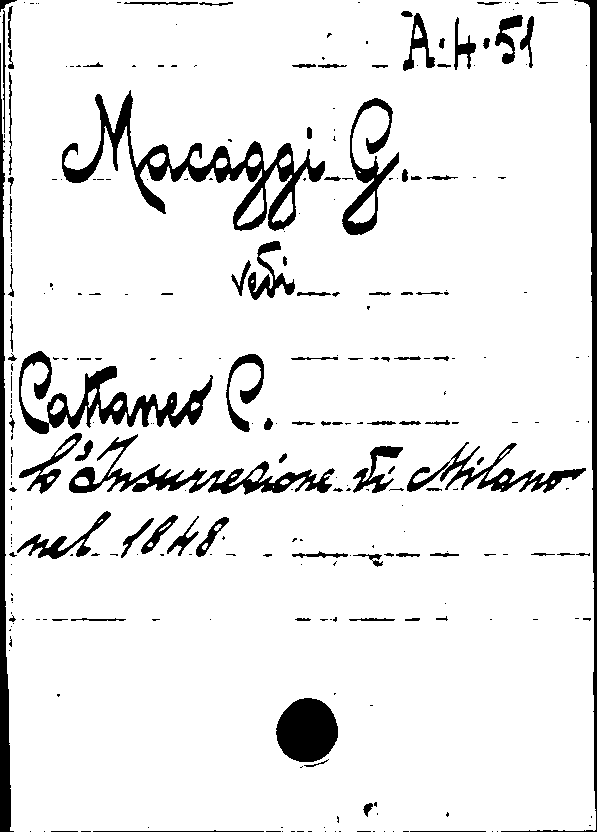 A·H·51
Macaggi G.
vedi
Cattaneo C.
L'Insurrezione di Milano
nel 1848